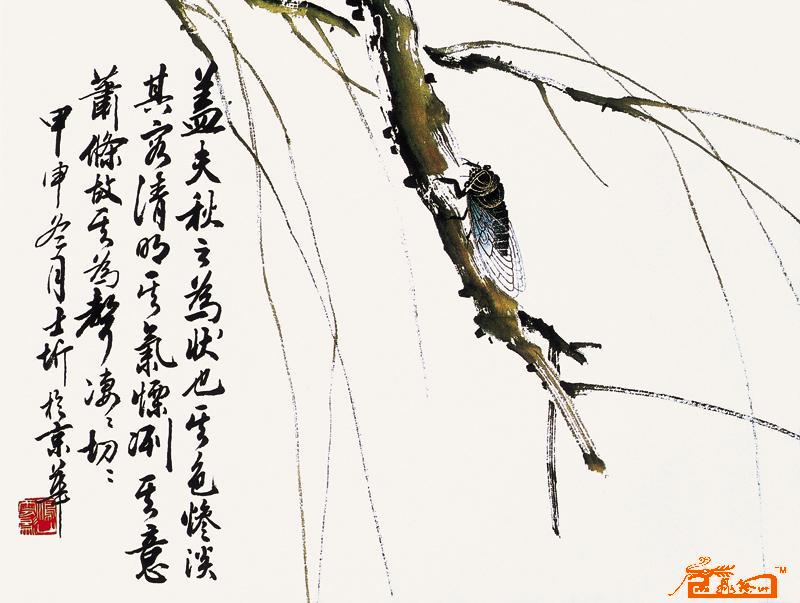 盖夫秋之為狀也其色惨淡
其容清明其氣慄冽其意
蕭條故其為聲凄〻切〻
甲申冬月士圻於京華